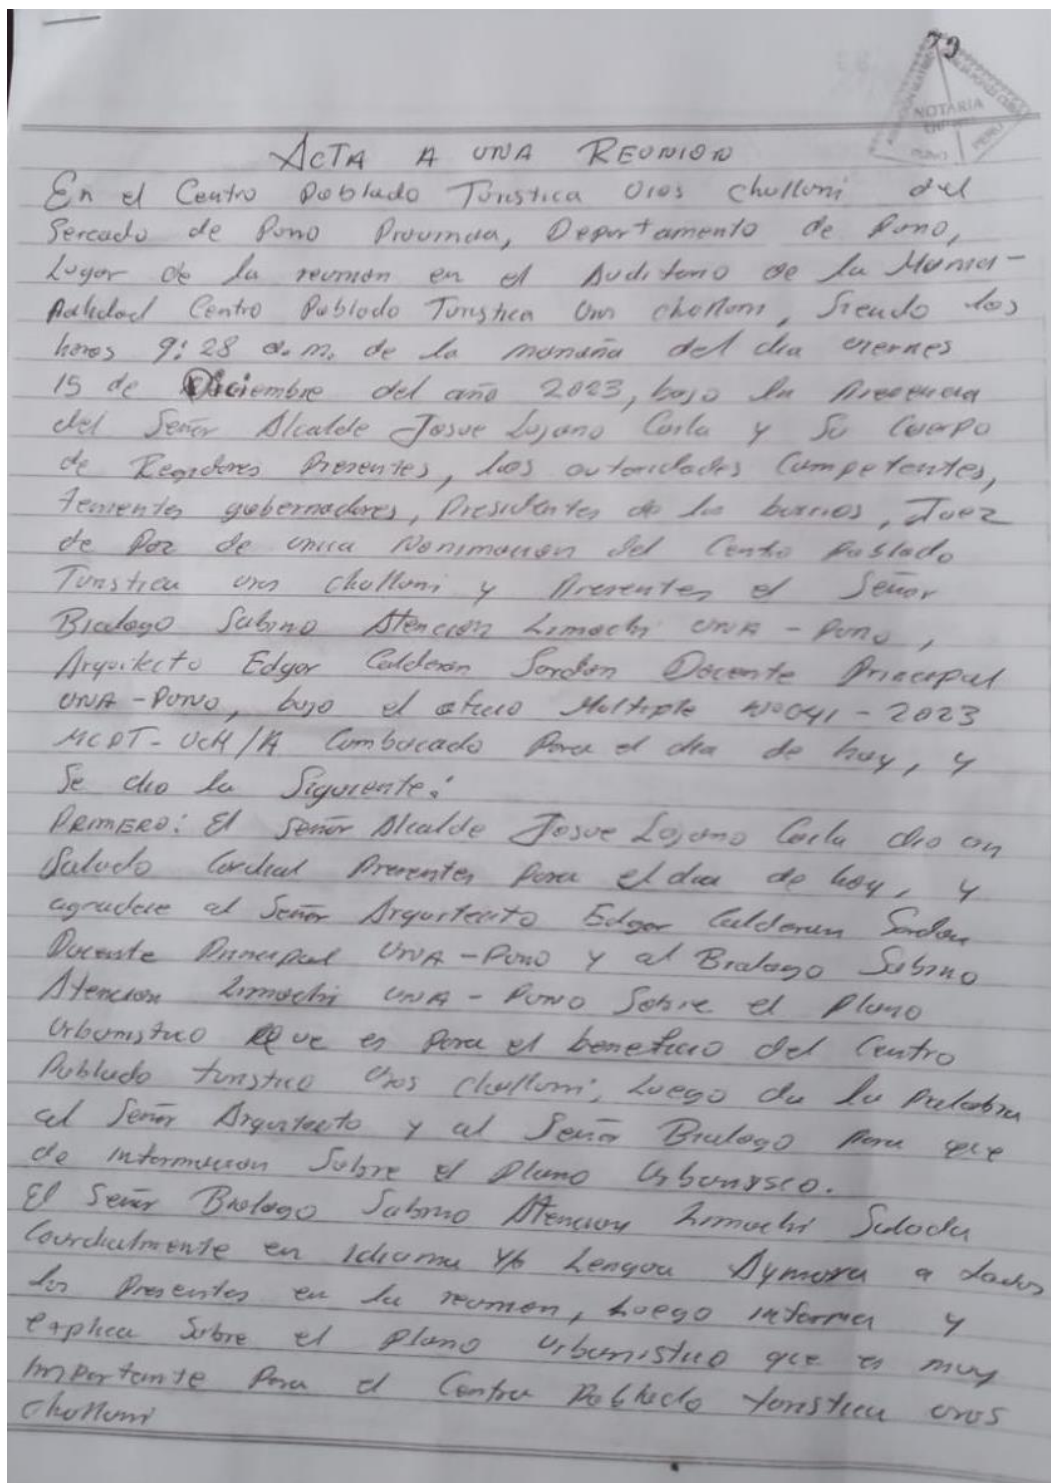 79
NOTARIA
PERU
PUNO
ACTA A UNA REUNION
En el Centro Poblado Turistica Uros Chulluni del
Sercado de Puno Provincia, Departamento de Puno,
Lugar de la reunion en el Auditorio de la Munici-
palidad Centro Poblado Turistica Uros chulluni, Siendo las
horas 9:28 a.m. de la mañana del dia viernes
15 de Diciembre del año 2023, bajo la Presencia
del Señor Alcalde Josue Lujano Coila y Su Cuerpo
de Regidores Presentes, las autoridades Competentes,
tenientes gobernadores, Presidentes de los barrios, Juez
de Paz de unica Nominacion del Centro Poblado
Turistica uros chulluni y Presentes el Señor
Biologo Sabino Atencion Limachi UNA - PUNO,
Arquitecto Edgar Calderon Sardon Docente Principal
UNA - PUNO, bajo el oficio Multiple Nº 041 - 2023
MCPT - UCH/A Combocado Para el dia de hoy, y
Se dio la Siguiente:
PRIMERO: El Señor Alcalde Josue Lujano Coila dio un
Saludo Cordial Presentes para el dia de hoy, y
agradece al Señor Arquitecito Edgar Calderon Sardon
Docente Principal UNA - PUNO y al Biologo Sabino
Atencion Limachi UNA - PUNO Sobre el Plano
Urbanistico que es para el beneficio del Centro
Poblado turistico Uros chulluni, Luego da la Palabra
al Señor Arquitecto y al Señor Biologo para que
de informacion Sobre el Plano
El Señor Biologo Sabino Atencion Limachi Saluda
Courdialmente en Idioma y/o Lengua Aymara a todos
los Presentes en la reunion, Luego informa y
explica Sobre el plano urbanistico que es muy
importante Para el Centro Poblado turistica uros
chulluni